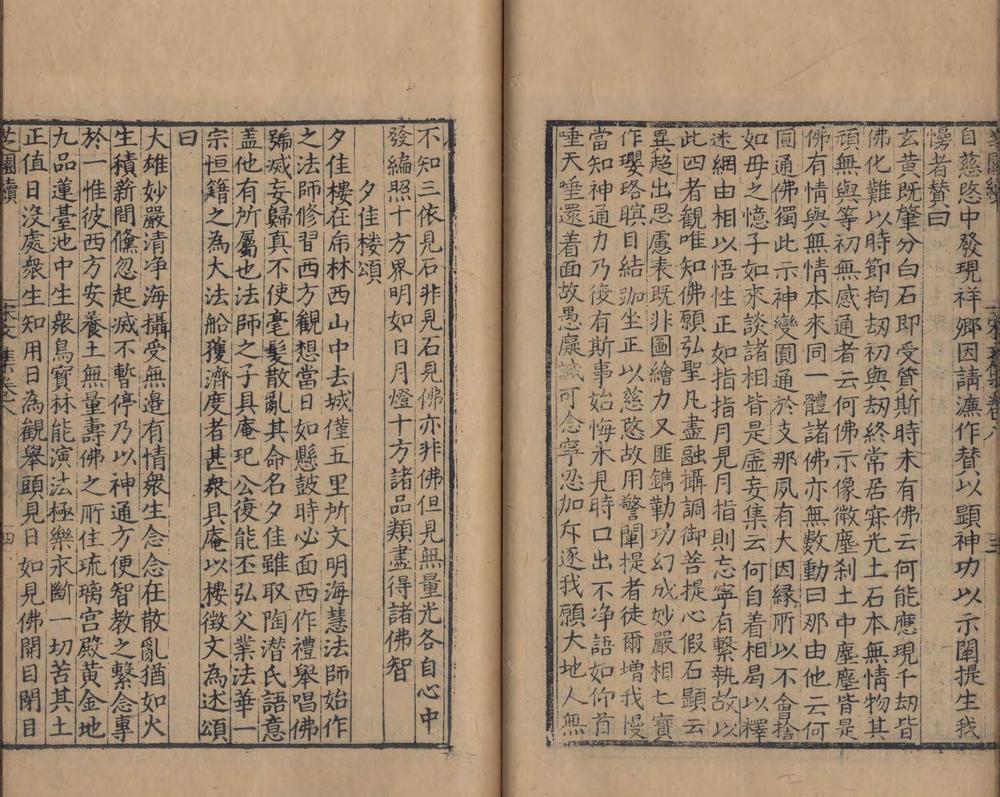 自慈愍中發現祥鄉因請濂作贊以顯神功以示闡提生我
慢者贊曰
玄黃既肇分白石即受質斯時未有佛云何能應現千刧皆
佛化難以時節拘刧初與刧終常居寂光土石本無情物其
頑無與等初無感通者云何佛示像微塵刹土中塵塵皆是
佛有情與無情本來同一體諸佛亦無數動曰那由他云何
圓通佛獨此示神變圓通於支那夙有大因縁所以不會捨
如母之憶子如來談諸相皆是虛妄集云何自着相局以釋
迷網由相以悟性正如指指月見月指則忘寧有繫執故以
此四者觀唯知佛願弘聖凡盡融攝調御菩提心假石顯云
異超出思慮表既非圖繪力又匪鐫勒功幻成妙嚴相七寶
作瓔珞瞑目結跏坐正以慈愍故用警闡提者徒爾増我慢
當知神通力乃復有斯事始悔未見時口出不净語如仰首
唾天唾還着面故愚癡誠可念寧忍加斥逐我願大地人無
不知三依見石非見石見佛亦非佛但見無量光各自心中
發編照十方界明如日月燈十方諸品類盡得諸佛智
夕佳樓頌
夕佳樓在帋林西山中去城僅五里所文明海慧法師始作
之法師修習西方觀想當日如懸鼓時必面西作禮舉唱佛
號滅妄歸真不使毫髮散亂其命名夕佳雖取陶潜氏語意
盖他有所屬也法師之子具庵玘公復能丕弘父業法華一
宗恒籍之為大法船獲濟度者甚衆具庵以樓徵文為述頌
曰
大雄妙嚴清净海攝受無邉有情衆生念念在散亂猶如火
生積薪間儵忽起滅不暫停乃以神通方便智教之繫念專
於一惟彼西方安養土無量壽佛之所住琉璃宫殿黄金地
九品蓮臺池中生衆鳥寳林能演法極樂永斷一切苦其土
正值日没處衆生知用日為觀舉頭見日如見佛開目閉目
芝園續
宋文集卷八
四